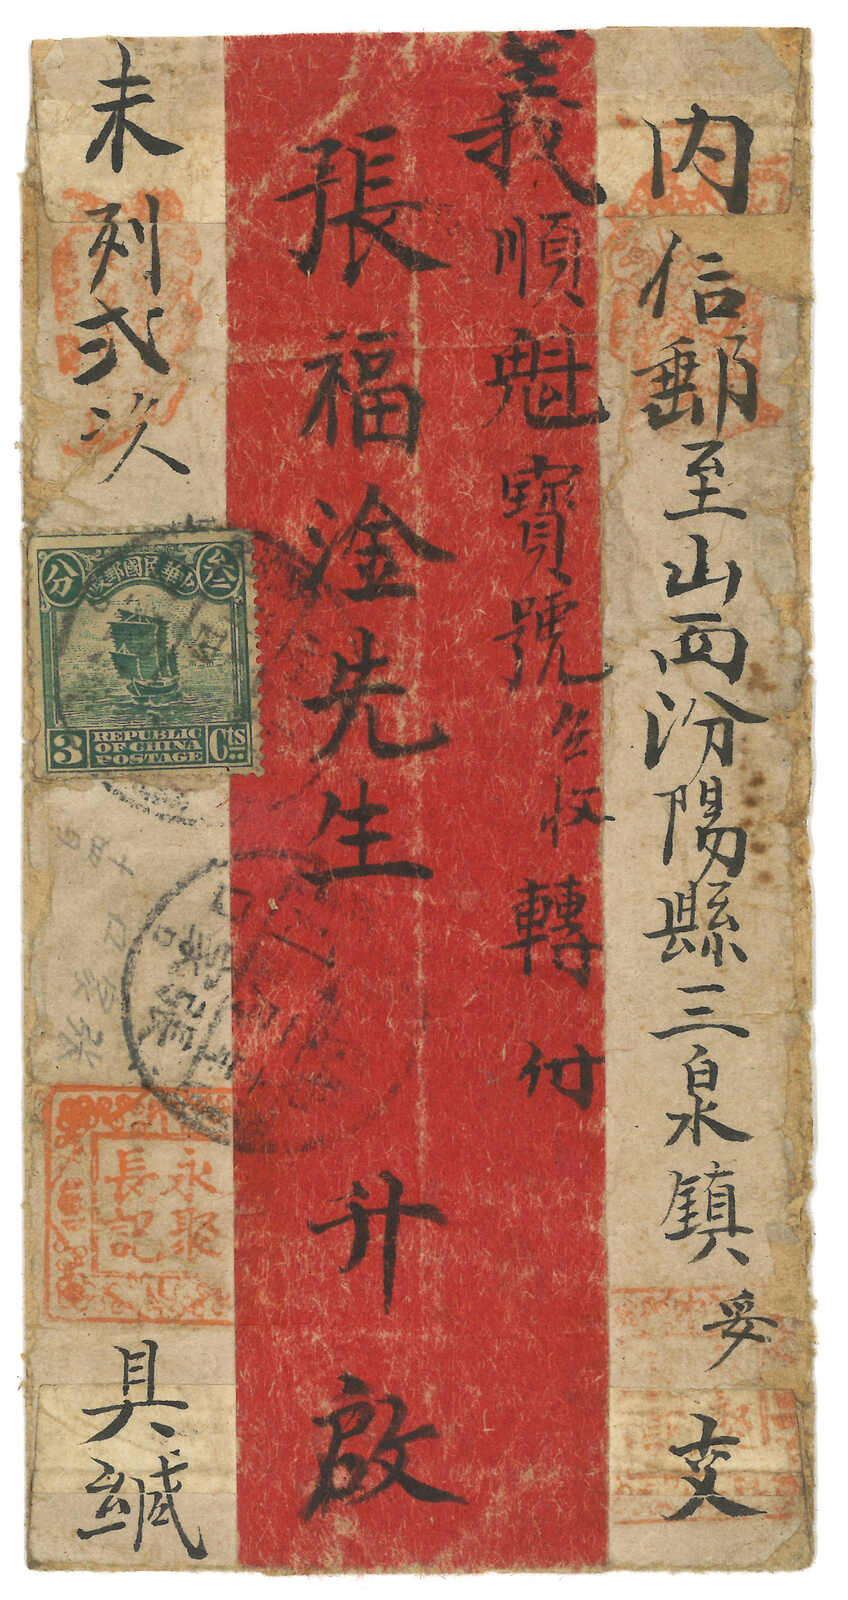 內信郵至山西汾陽縣三泉鎮妥交
義順魁寶號查收轉付
張福淦先生升啟
未列弍次
具緘
永聚
長記
中華民國郵政
叁
分
3
REPUBLIC
OF CHINA
POSTAGE
Cts